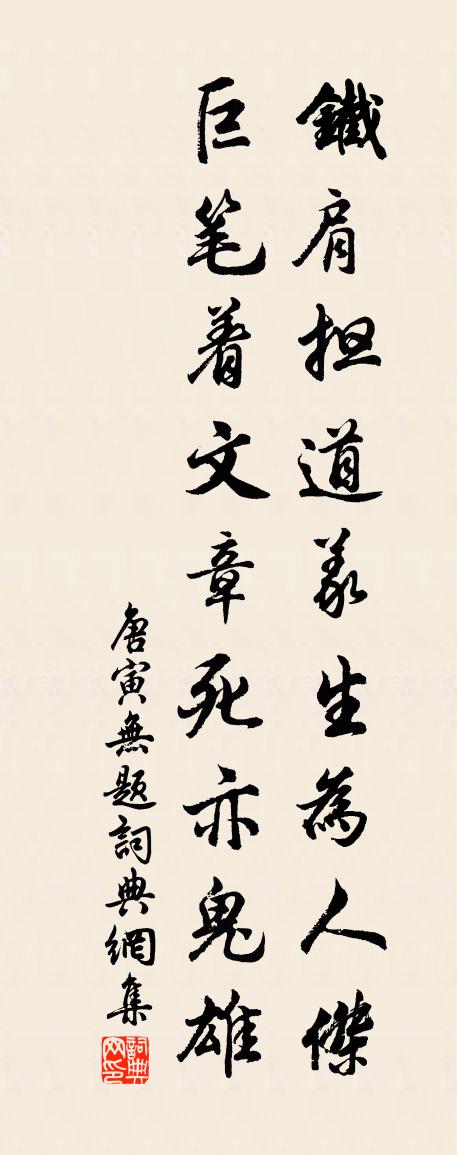 鐵肩担道義生為人傑
巨笔着文章死亦鬼雄
唐寅無題詞典網集
詞典网印